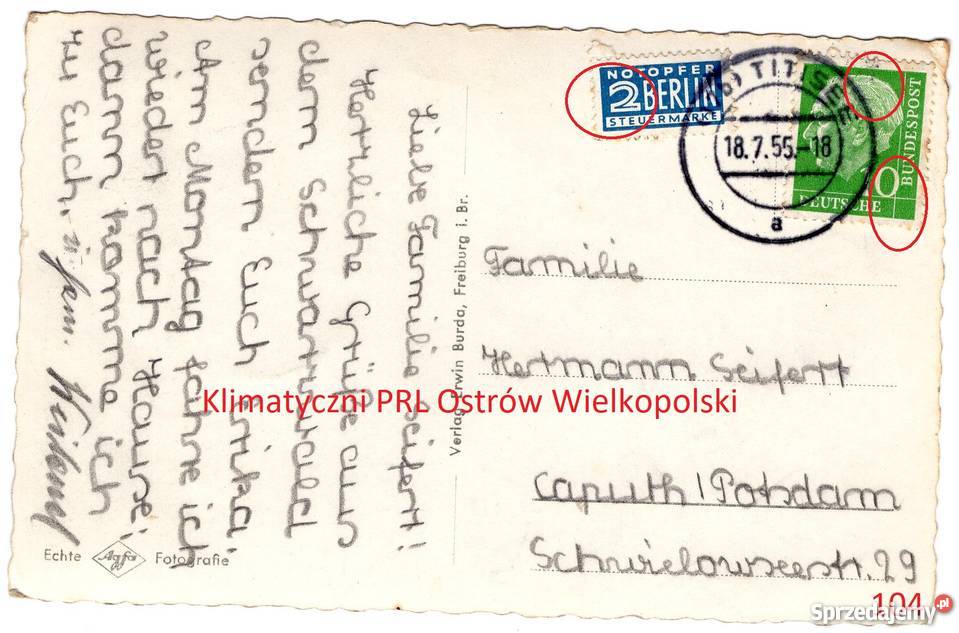 NOTOPFER
2 BERLIN
STEUERMARKE
TITISEE
18.7.55.-18
a
10
DEUTSCHE
BUNDESPOST
Liebe Familie Seifert!
Herzliche Grüße aus
dem Schwarzwald
senden Euch Erika.
Am Montag fahre ich
wieder nach Hause;
dann komme ich
zu Euch. u. fam.
Verlag Erwin Burda, Freiburg i. Br.
Familie
Hermann Seifert
Caputh/Potsdam
Schwielowseestr. 29
Echte Agfa Fotografie
Klimatyczni PRL Ostrów Wielkopolski
104
Sprzedajemy.pl